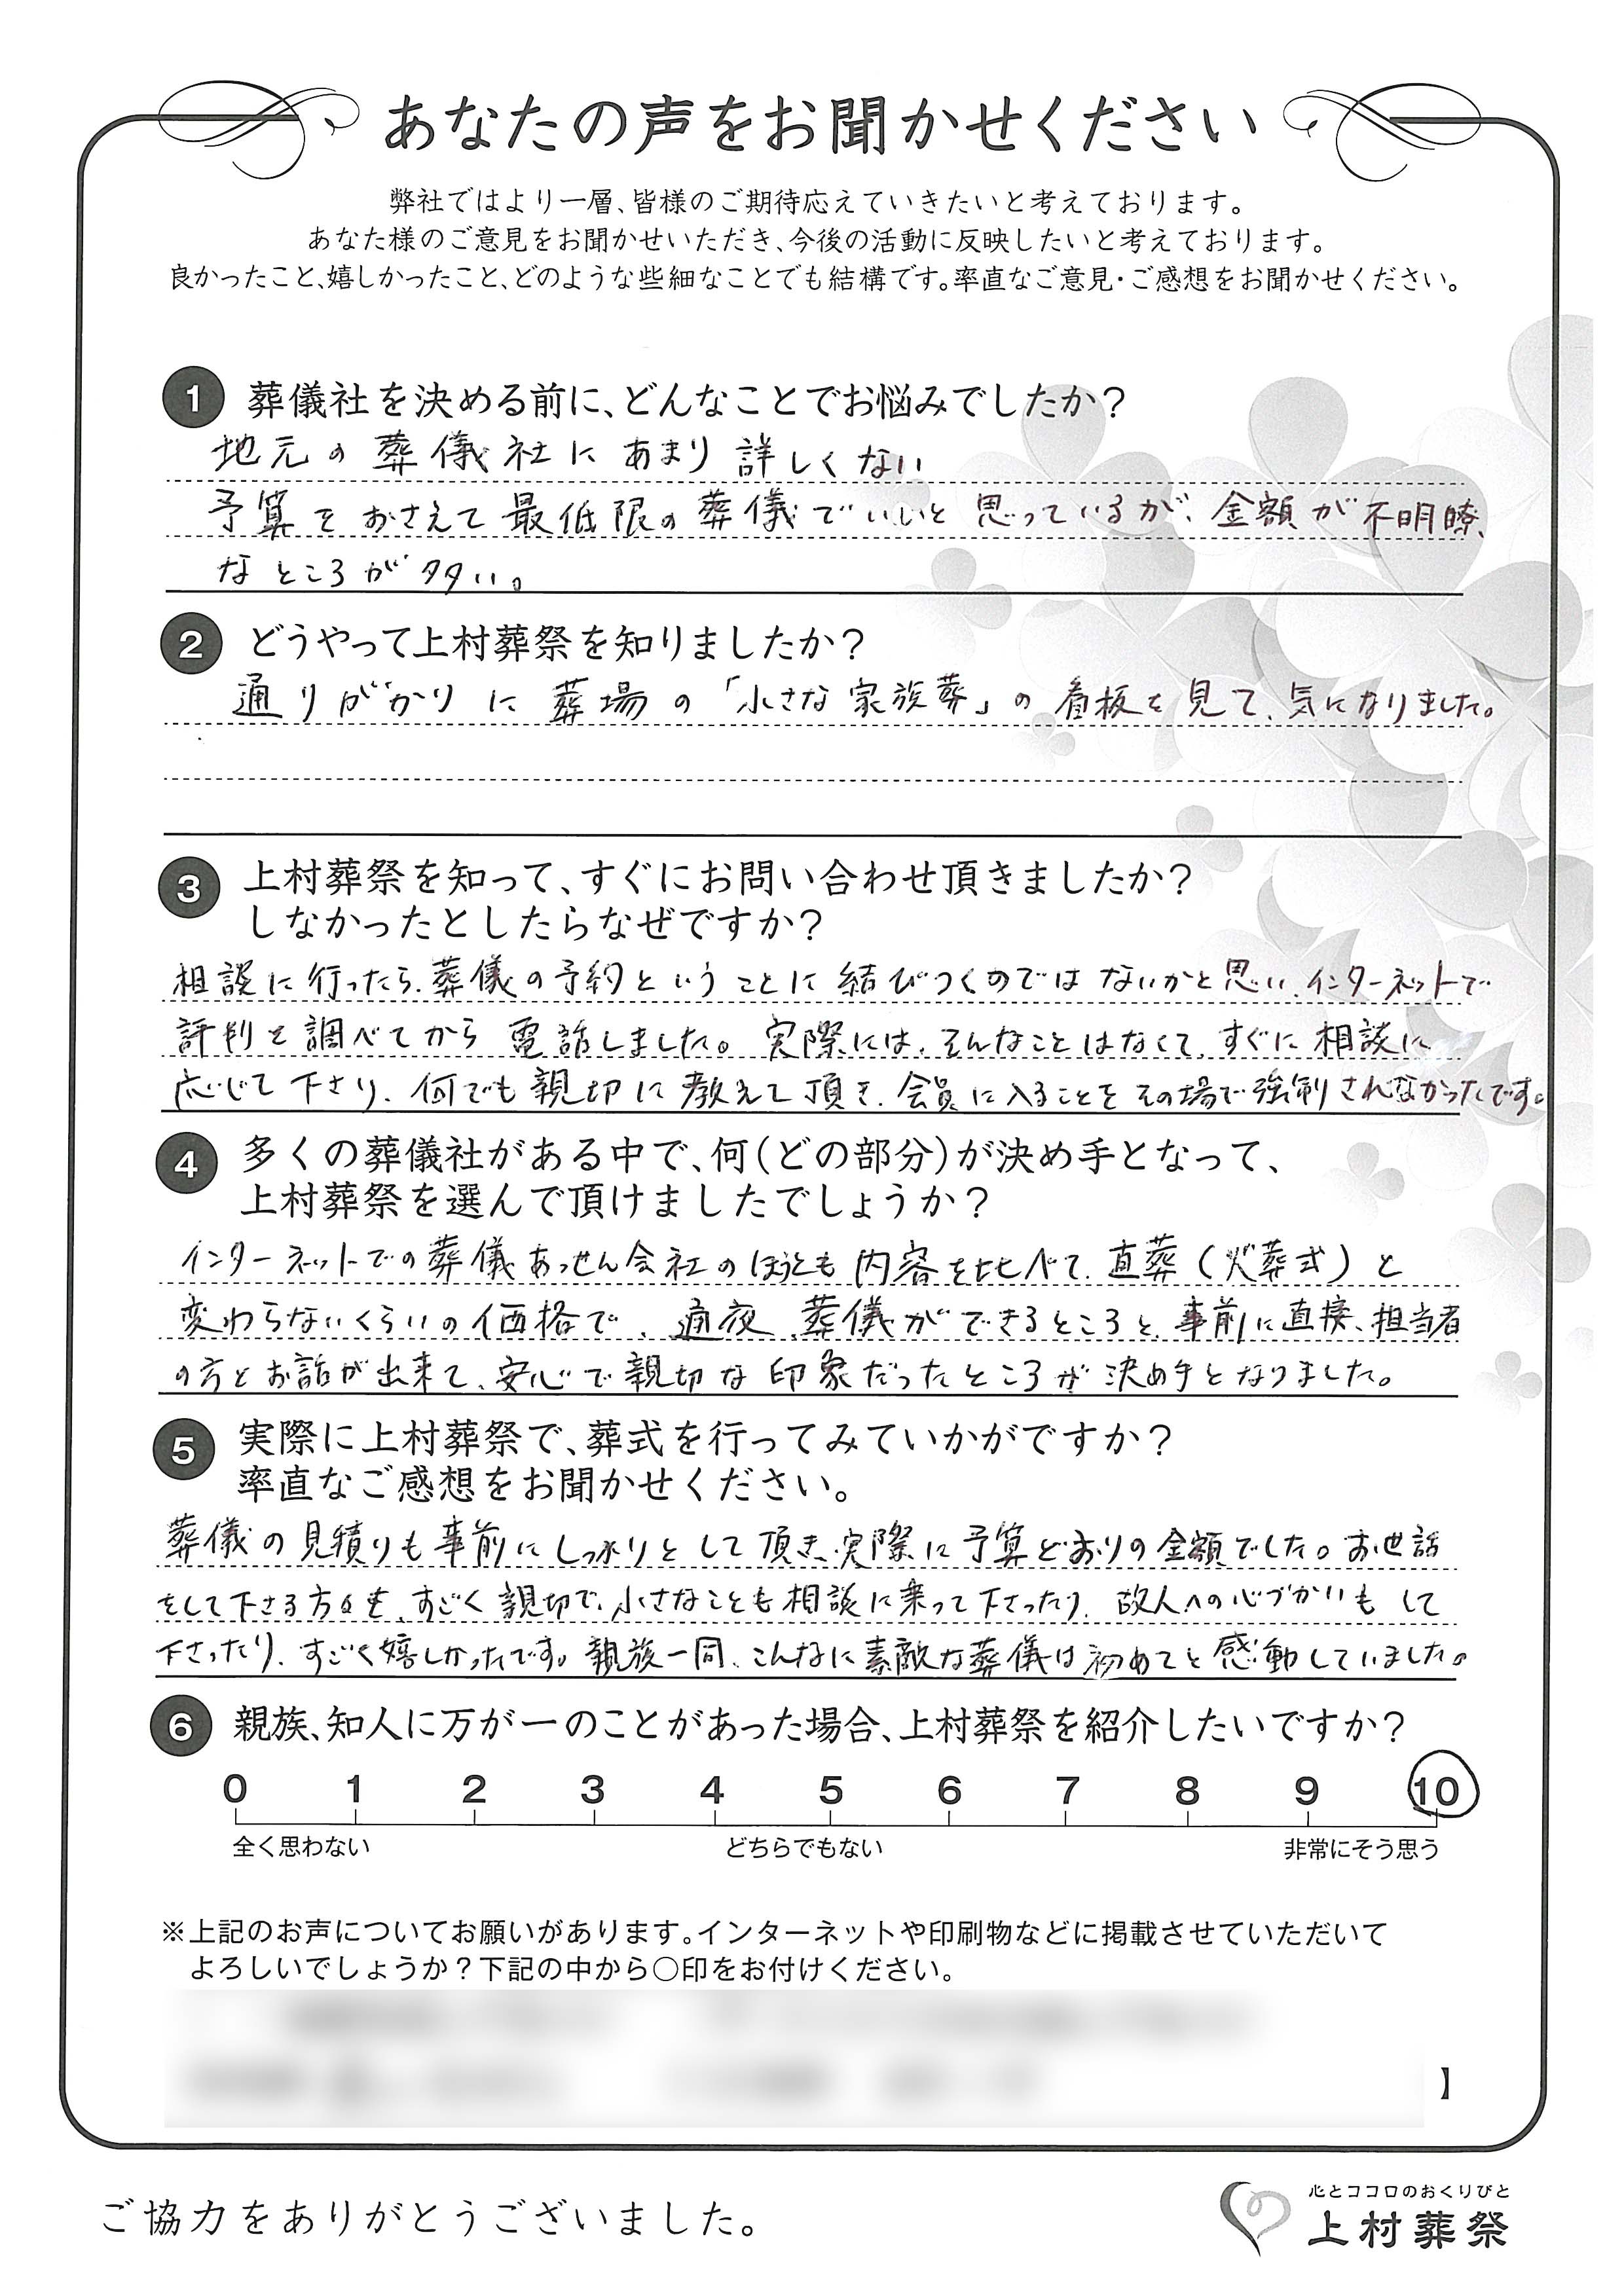 あなたの声をお聞かせください
弊社ではより一層、皆様のご期待応えていきたいと考えております。
あなた様のご意見をお聞かせいただき、今後の活動に反映したいと考えております。
良かったこと、嬉しかったこと、どのような些細なことでも結構です。率直なご意見・ご感想をお聞かせください。
1 葬儀社を決める前に、どんなことでお悩みでしたか?
地元の葬儀社にあまり詳しくない
予算をおさえて最低限の葬儀でいいと思っているが、金額が不明瞭、
なところが多い。
2 どうやって上村葬祭を知りましたか?
通りがかりに葬場の「小さな家族葬」の看板を見て、気になりました。
3 上村葬祭を知って、すぐにお問い合わせ頂きましたか?
しなかったとしたらなぜですか?
相談に行ったら、葬儀の予約ということに結びつくのではないかと思い、インターネットで
評判を調べてから電話しました。実際には、そんなことはなくて、すぐに相談に
応じて下さり、何でも親切に教えて頂き、会員に入ることをその場で強制されなかったです。
4 多くの葬儀社がある中で、何(どの部分)が決め手となって、
上村葬祭を選んで頂けましたでしょうか?
インターネットでの葬儀あっせん会社のほうとも内容を比べて、直葬(火葬式)と
変わらないくらいの価格で、通夜、葬儀ができるところと、事前に直接、担当者
の方とお話が出来て、安心で親切な印象だったところが決め手となりました。
5 実際に上村葬祭で、葬式を行ってみていかがですか?
率直なご感想をお聞かせください。
葬儀の見積りも事前にしっかりとして頂き、実際に予算どおりの金額でした。お世話
をして下さる方々も、すごく親切で、小さなことも相談に乗って下さったり、故人への心づかいもして
下さったり、すごく嬉しかったです。親族一同、こんなに素敵な葬儀は初めてと感動していました。
6 親族、知人に万が一のことがあった場合、上村葬祭を紹介したいですか?
0 1 2 3 4 5 6 7 8 9 10
全く思わない どちらでもない 非常にそう思う
※上記のお声についてお願いがあります。インターネットや印刷物などに掲載させていただいて
よろしいでしょうか?下記の中から○印をお付けください。
】
ご協力をありがとうございました。
心とココロのおくりびと
上村葬祭